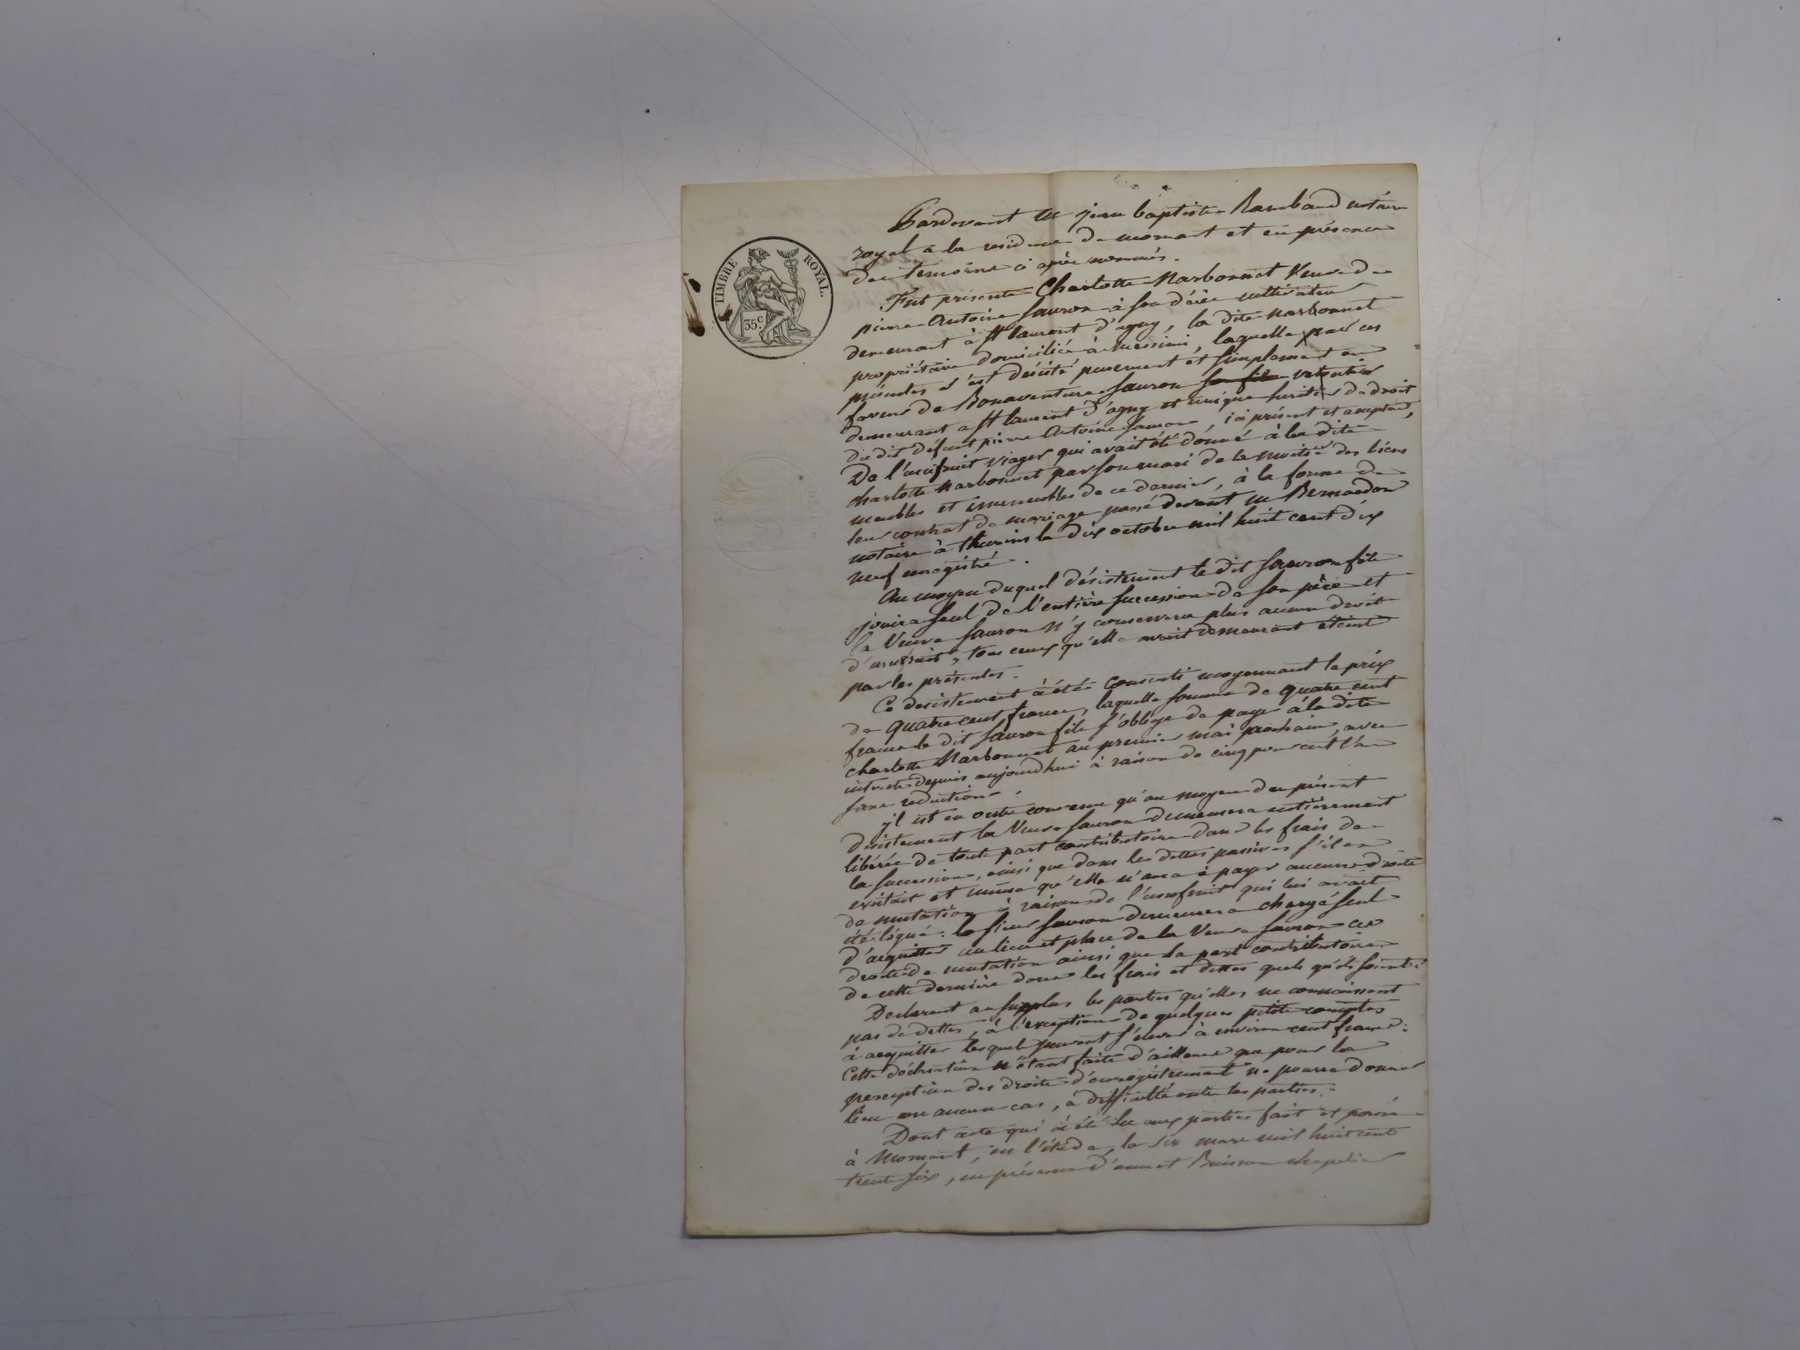 TIMBRE ROYAL.
35 c.
Pardevant Me jean baptiste Rambaud notaire
royal à la residence de mornant et en présence
des temoins ci après nommés.
Fut présente Charlotte Narbonnet Veuve de
pierre Antoine Sauron à son décès cultivateur
demeurant à St laurent d'agny, la dite Narbonnet
propriétaire domiciliée à Messimi, laquelle par ces
présentes s'est désisté purement et simplement en
faveur de Bonaventure Sauron son fils
demeurant a St laurent d'agny et unique heritier de droit
du dit défunt pierre Antoine Sauron, ici présent et acceptant,
De l'usufruit viager qui avait été donné à la dite
charlotte Narbonnet par son mari de la moitié des biens
meubles et immeubles de ce dernier, à la forme de
leur contrat de mariage passé devant me Bernardon
notaire à thurins le dix octobre mil huit cent dix
neuf enregistré.
Au moyen duquel désistement le dit Sauron fils
jouira seul de l'entière succession de son père et
la Veuve Sauron n'y conservera plus aucun droit
d'usufruit, tous ceux qu'elle avait demeurant éteint
par les présentes.
Ce desistement à été consenti moyennant le prix
de quatre cent francs, laquelle somme de quatre cent
francs le dit Sauron fils s'oblige de payer à la dite
charlotte Narbonnet au premier mai prochain, avec
interets depuis aujourdhui à raison de cinq pour cent l'an
sans reduction.
y'l est en outre convenu qu'au moyen du présent
désistement la Veuve Sauron demeurera entièrement
libérée de toute part contributoire dans les frais de
la succession, ainsi que dans les dettes passives s'il en
existait et même qu'elle n'aura à payer aucuns droits
de mutation à raison de l'usufruit qui lui avait
été légué. le sieur Sauron demeurera chargé seul
d'acquitter au lieu et place de la Veuve Sauron ces
droits de mutation ainsi que la part contributoire
de cette dernière dans les frais et dettes quels qu'ils soient.
Déclarent au surplus les parties qu'elles ne connaissent
pas de dettes, à l'exception de quelques petits comptes
à acquitter lesquels peuvent s'élever à environ cent francs.
Cette déclaration n'étant faite d'ailleurs que pour la
perception des droits d'enregistrement ne pourra donner
lieu en aucun cas, à difficulté entre les parties.
Dont acte qui à été lu aux parties fait et passé
à Mornant, en l'étude, le six mars mil huit cent
trente six, en présence d'ennet Buisson chapelier